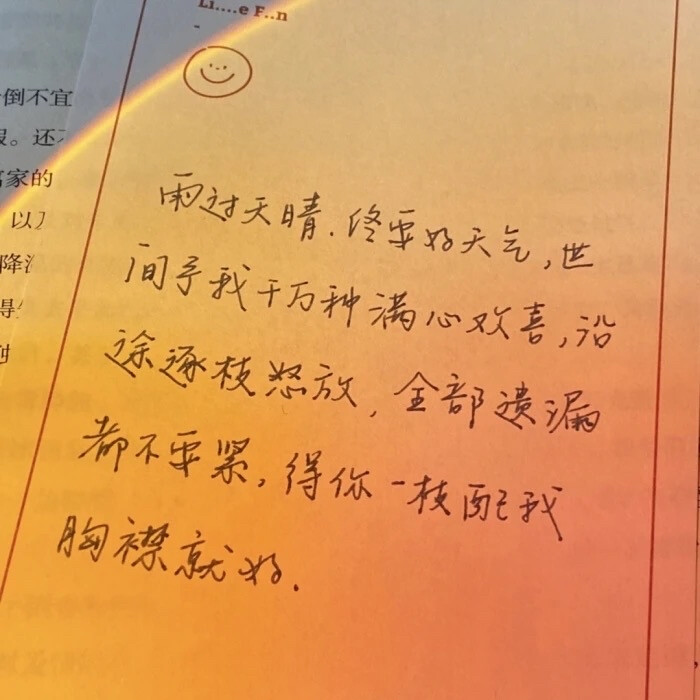 Li....e F..n
倒不宜
还
家的
以
降
得
雨过天晴.终要好天气,世
间予我千万种满心欢喜,沿
途逐枝怒放,全部遗漏
都不要紧,得你一枝配我
胸襟就好.